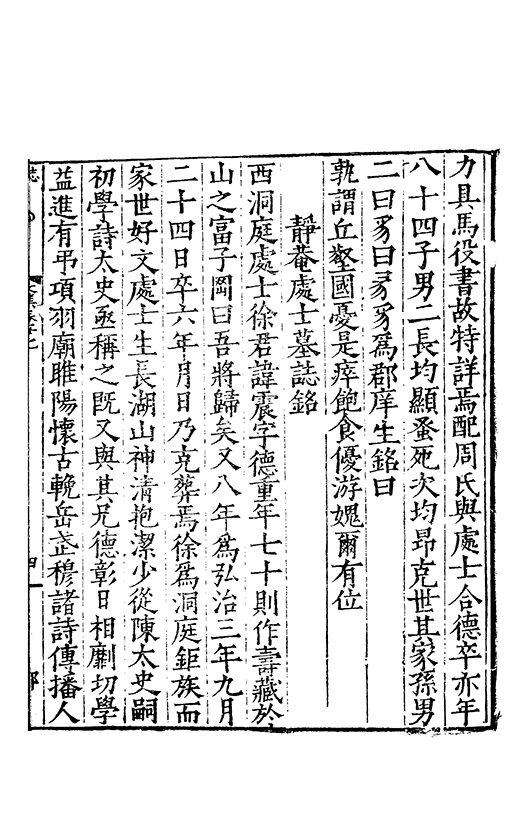 力具馬役書故特詳焉配周氏與處士合德卒亦年
八十四子男二長均顯蚤死次均昂克世其家孫男
二曰豸曰豸豸爲郡庠生銘曰
孰謂丘壑國憂是瘁飽食優游媿爾有位
靜菴處士墓誌銘
西洞庭處士徐君諱震字德重年七十則作壽藏於
山之富子岡曰吾將歸矣又八年爲弘治三年九月
二十四日卒六年月日乃克葬焉徐爲洞庭鉅族而
家世好文處士生長湖山神清抱潔少從陳太史嗣
初學詩太史亟稱之既又與其兄德彰日相劘切學
益進有弔項羽廟睢陽懷古輓岳武穆諸詩傳播人
四